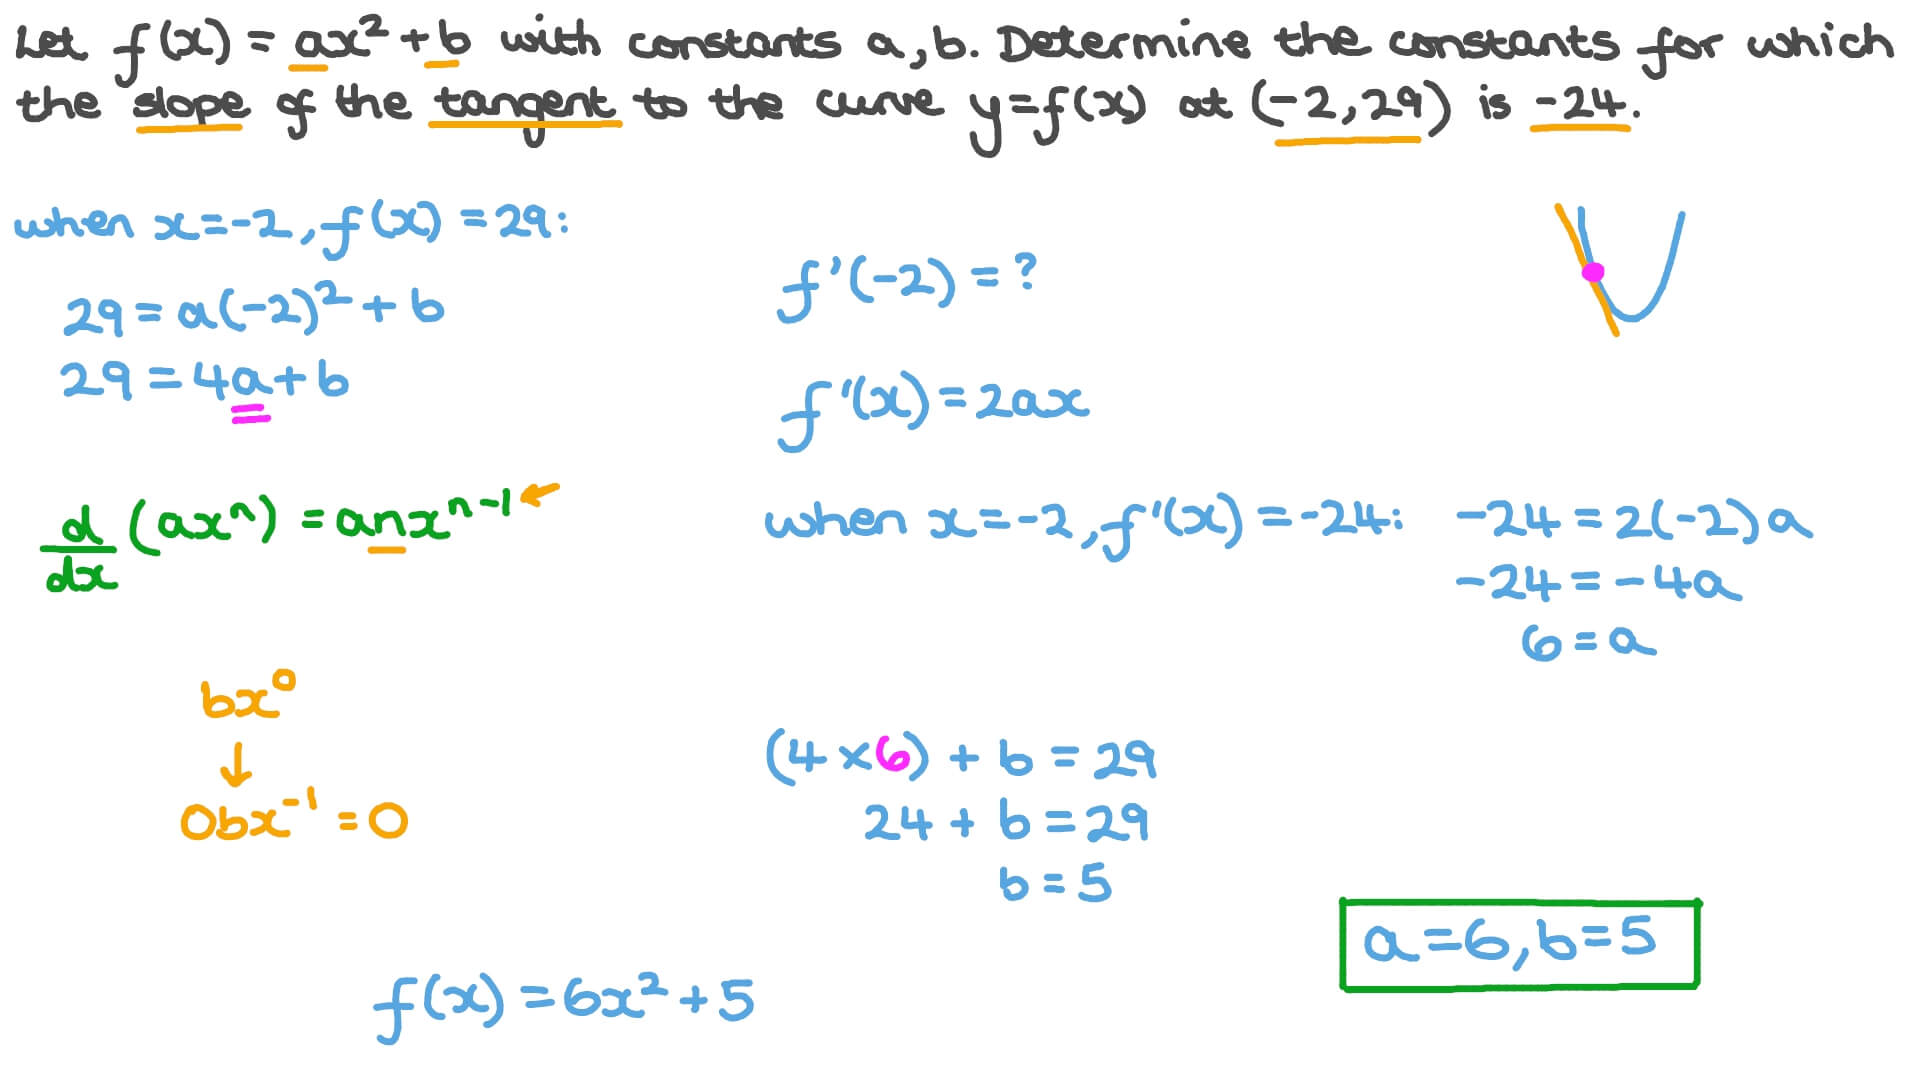 Let f(x) = ax² + b with constants a, b. Determine the constants for which
the slope of the tangent to the curve y=f(x) at (-2, 29) is -24.
when x=-2, f(x) = 29:
29 = a(-2)² + b
29 = 4a + b
d/dx (axⁿ) = anxⁿ⁻¹
bx⁰
↓
0bx⁻¹ = 0
f'(-2) = ?
f'(x) = 2ax
when x=-2, f'(x) = -24:
-24 = 2(-2)a
-24 = -4a
6 = a
(4 × 6) + b = 29
24 + b = 29
b = 5
f(x) = 6x² + 5
a = 6, b = 5